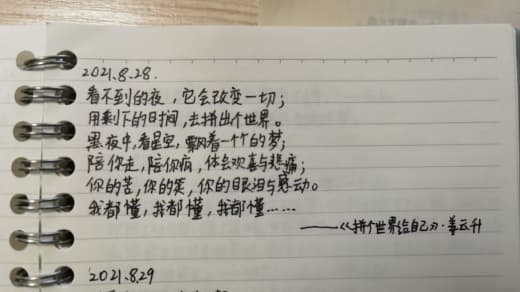 2021.8.28.
看不到的夜，它会改变一切；
用剩下的时间，去拼出个世界。
黑夜中，看星空，飘着一个个的梦；
陪你走，陪你疯，体会欢喜与悲痛；
你的苦，你的笑，你的眼泪与感动。
我都懂，我都懂，我都懂……
——《拼个世界给自己》·姜云升
2021.8.29